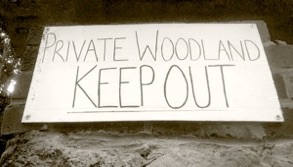 PRIVATE WOODLAND
KEEP OUT